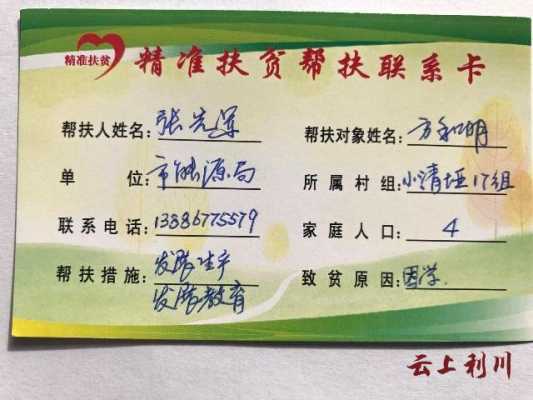 精准扶贫
精准扶贫帮扶联系卡
帮扶人姓名：张先军
帮扶对象姓名：方和明
单位：市能源局
所属村组：小清垭17组
联系电话：13386775579
家庭人口：4
帮扶措施：发展生产
发展教育
致贫原因：因学
云上利川